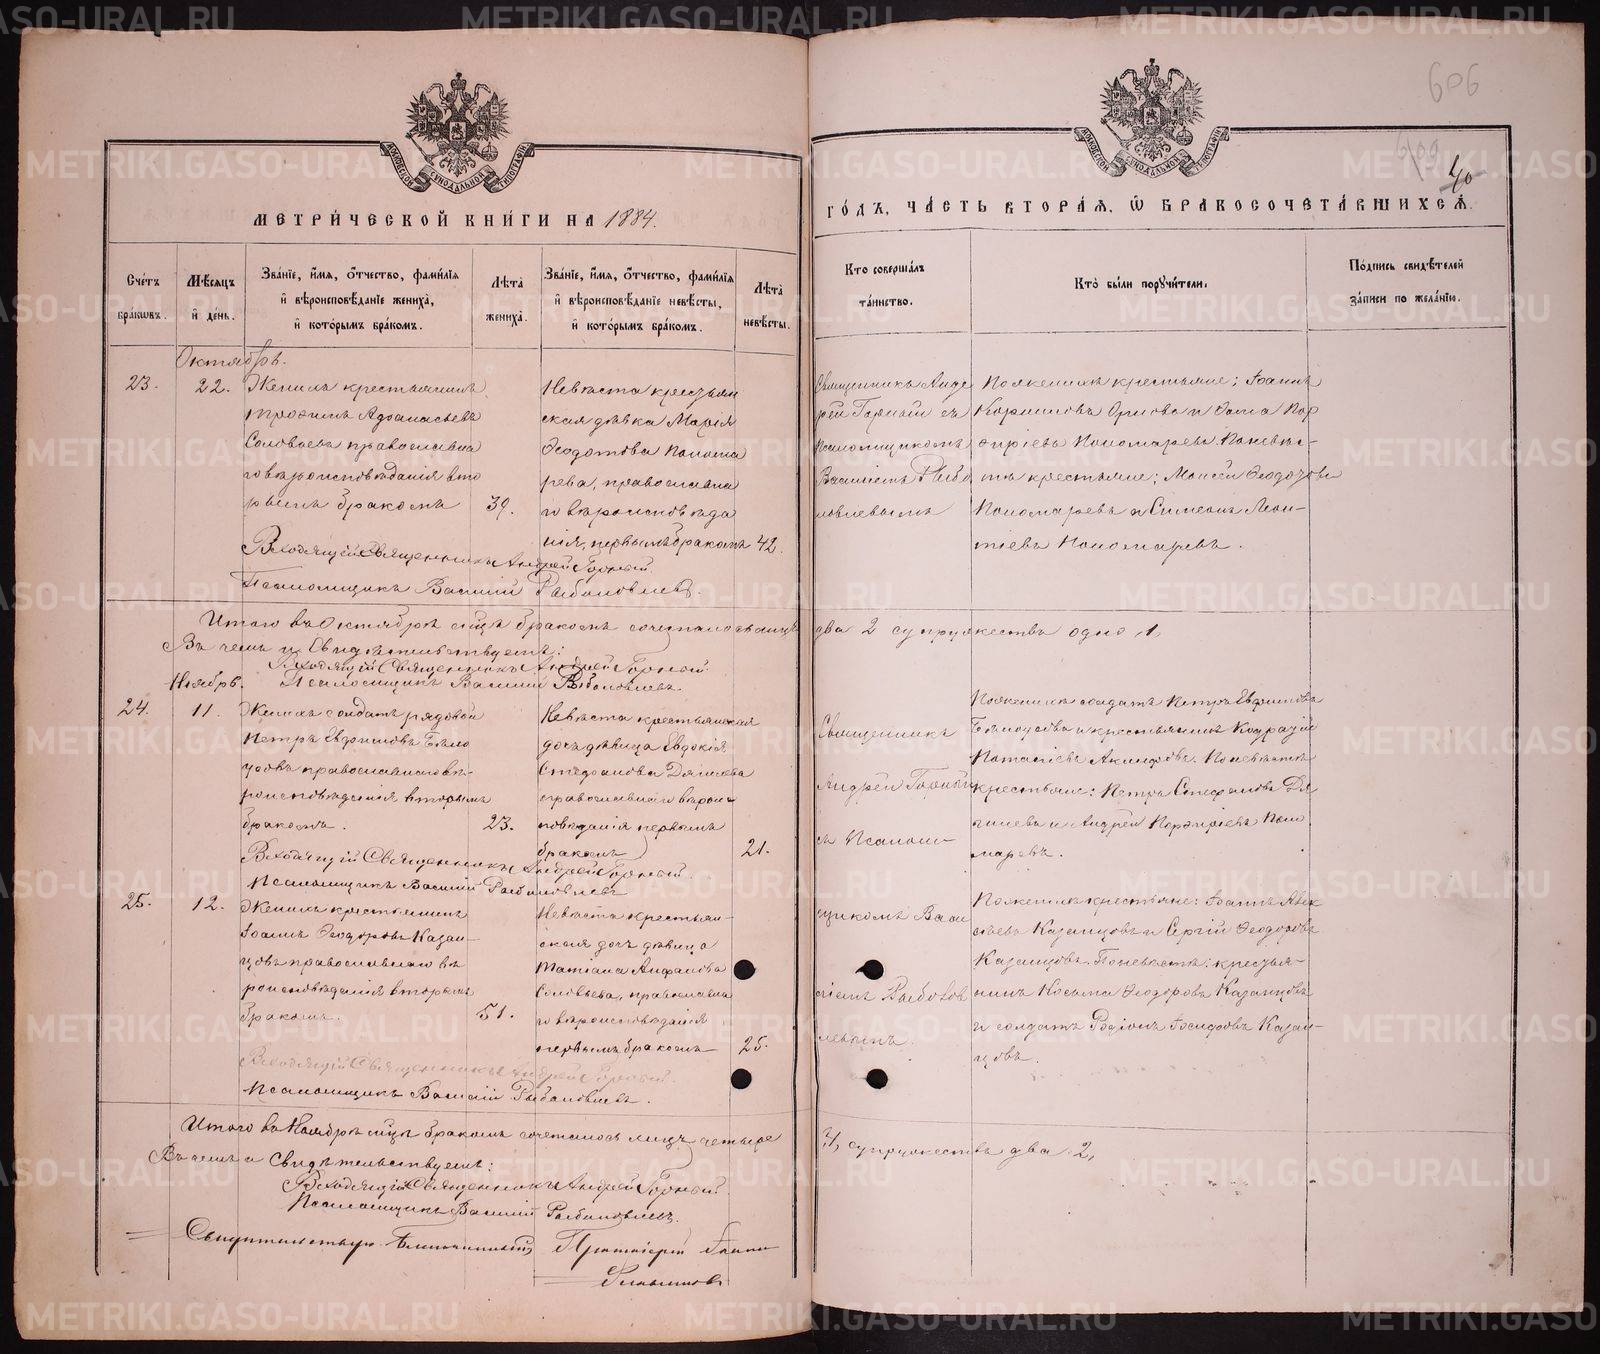 606
609
40
МОСКОВСКОЙ СѴНОДАЛЬНОЙ ТИПОГРАФІИ
МОСКОВСКОЙ СѴНОДАЛЬНОЙ ТИПОГРАФІИ
МЕТРИ́ЧЕСКОЙ КНИ́ГИ НА 1884.
ГО́ДЪ, ЧА́СТЬ ВТОРА́Я, Ѡ БРАКОСОЧЕТА́ВШИХСѦ.
Сче́тъ бра́ковъ.
Мѣ́сяцъ и́ де́нь.
Зва́нїе, и́мя, о́тчество, фами́лїя
и́ вѣроисповѣ́данїе жениха̀,
и́ кото́рымъ бра́комъ.
Лѣта̀ жениха̀.
Зва́нїе, и́мя, о́тчество, фами́лїя
и́ вѣроисповѣ́данїе невѣ́сты,
и́ кото́рымъ бра́комъ.
Лѣта̀ невѣ́сты.
Кто соверша́лъ
та́инство.
Кто̀ бы́ли поручи́тели.
По́дпись свидѣ́телей
за́писи по жела́нїю.
Октябрь.
23.
22.
Женихъ крестьянинъ
Трофимъ Афанасьевъ
Соловьевъ православна
го вѣроисповѣданія вто
рымъ бракомъ
39.
Невѣста крестьян
ская дѣвка Марія
Ѳеодотова Понома
рева, православна
го вѣроисповѣда
нія, первымъ бракомъ
42.
Священникъ Анд
рей Горный съ
Псаломщикомъ
Василіемъ Рыбо
ловлевымъ
По женихѣ крестьяне; Іоаннъ
Корниловъ Орлова и Ѳома Пор
фиріевъ Пономаревъ По невѣс-
тѣ крестьяне; Моисей Ѳеодотовъ
Пономаревъ и Симеонъ Леон-
тіевъ Пономаревъ.
Приходящій Священникъ Андрей Горный.
Псаломщикъ Василій Рыболовлевъ.
Итого въ Октябрѣ м҃цѣ бракомъ сочеталось лицъ два 2 супружествъ одно 1,
Въ чемъ и свидѣтельствуемъ:
Священникъ Андрей Горный.
Псаломщикъ Василій Рыболовлевъ.
Ноябрь.
24.
11.
Женихъ солдатъ рядовой
Петръ Евфимовъ Бѣло
усовъ православнаго вѣ-
роисповѣданія вторымъ
бракомъ.
23.
Невѣста крестьянская
дочь дѣвица Евдокія
Стефанова Дягилева
православнаго вѣроис-
повѣданія первымъ
бракомъ
21.
Священникъ
Андрей Горный
съ Псалом-
щикомъ Васи
ліемъ Рыболов
левымъ.
По женихѣ солдатъ Петръ Евфимовъ
Бѣлоусовъ и крестьянинъ Кодратій
Потапіевъ Акинфовъ. По невѣстѣ
крестьяне: Петръ Стефановъ Дя
гилевъ и Андрей Порфиріевъ Поно
маревъ.
Священникъ Андрей Горный.
Псаломщикъ Василій Рыболовлевъ
25.
12.
Женихъ крестьянинъ
Іоаннъ Ѳеодоровъ Казан-
цовъ православнаго вѣ
роисповѣданія вторымъ
бракомъ.
51.
Невѣста крестьян-
ская дочь дѣвица
Татіана
Соловьева, православна
го вѣроисповѣданія
первымъ бракомъ
25.
По женихѣ крестьяне: Іоаннъ Алек
сѣевъ Казанцовъ и Сергій Ѳеодоровъ
Казанцовъ. По невѣстѣ: крестья-
нинъ Косьма Ѳеодоровъ Казанцовъ
и солдатъ Родіонъ Іосифовъ Казан-
цовъ.
Священникъ Андрей Горный.
Псаломщикъ Василій Рыболовлевъ.
Итого въ Ноябрѣ м҃цѣ бракомъ сочеталось лицъ четыре 4, супружествъ два 2,
Въ чемъ и Свидѣтельствуемъ:
Священникъ Андрей Горный.
Псаломщикъ Василій Рыболовлевъ.
Свидѣтельствую Благочинный, Протоіерей
METRIKI.GASO-URAL.RU